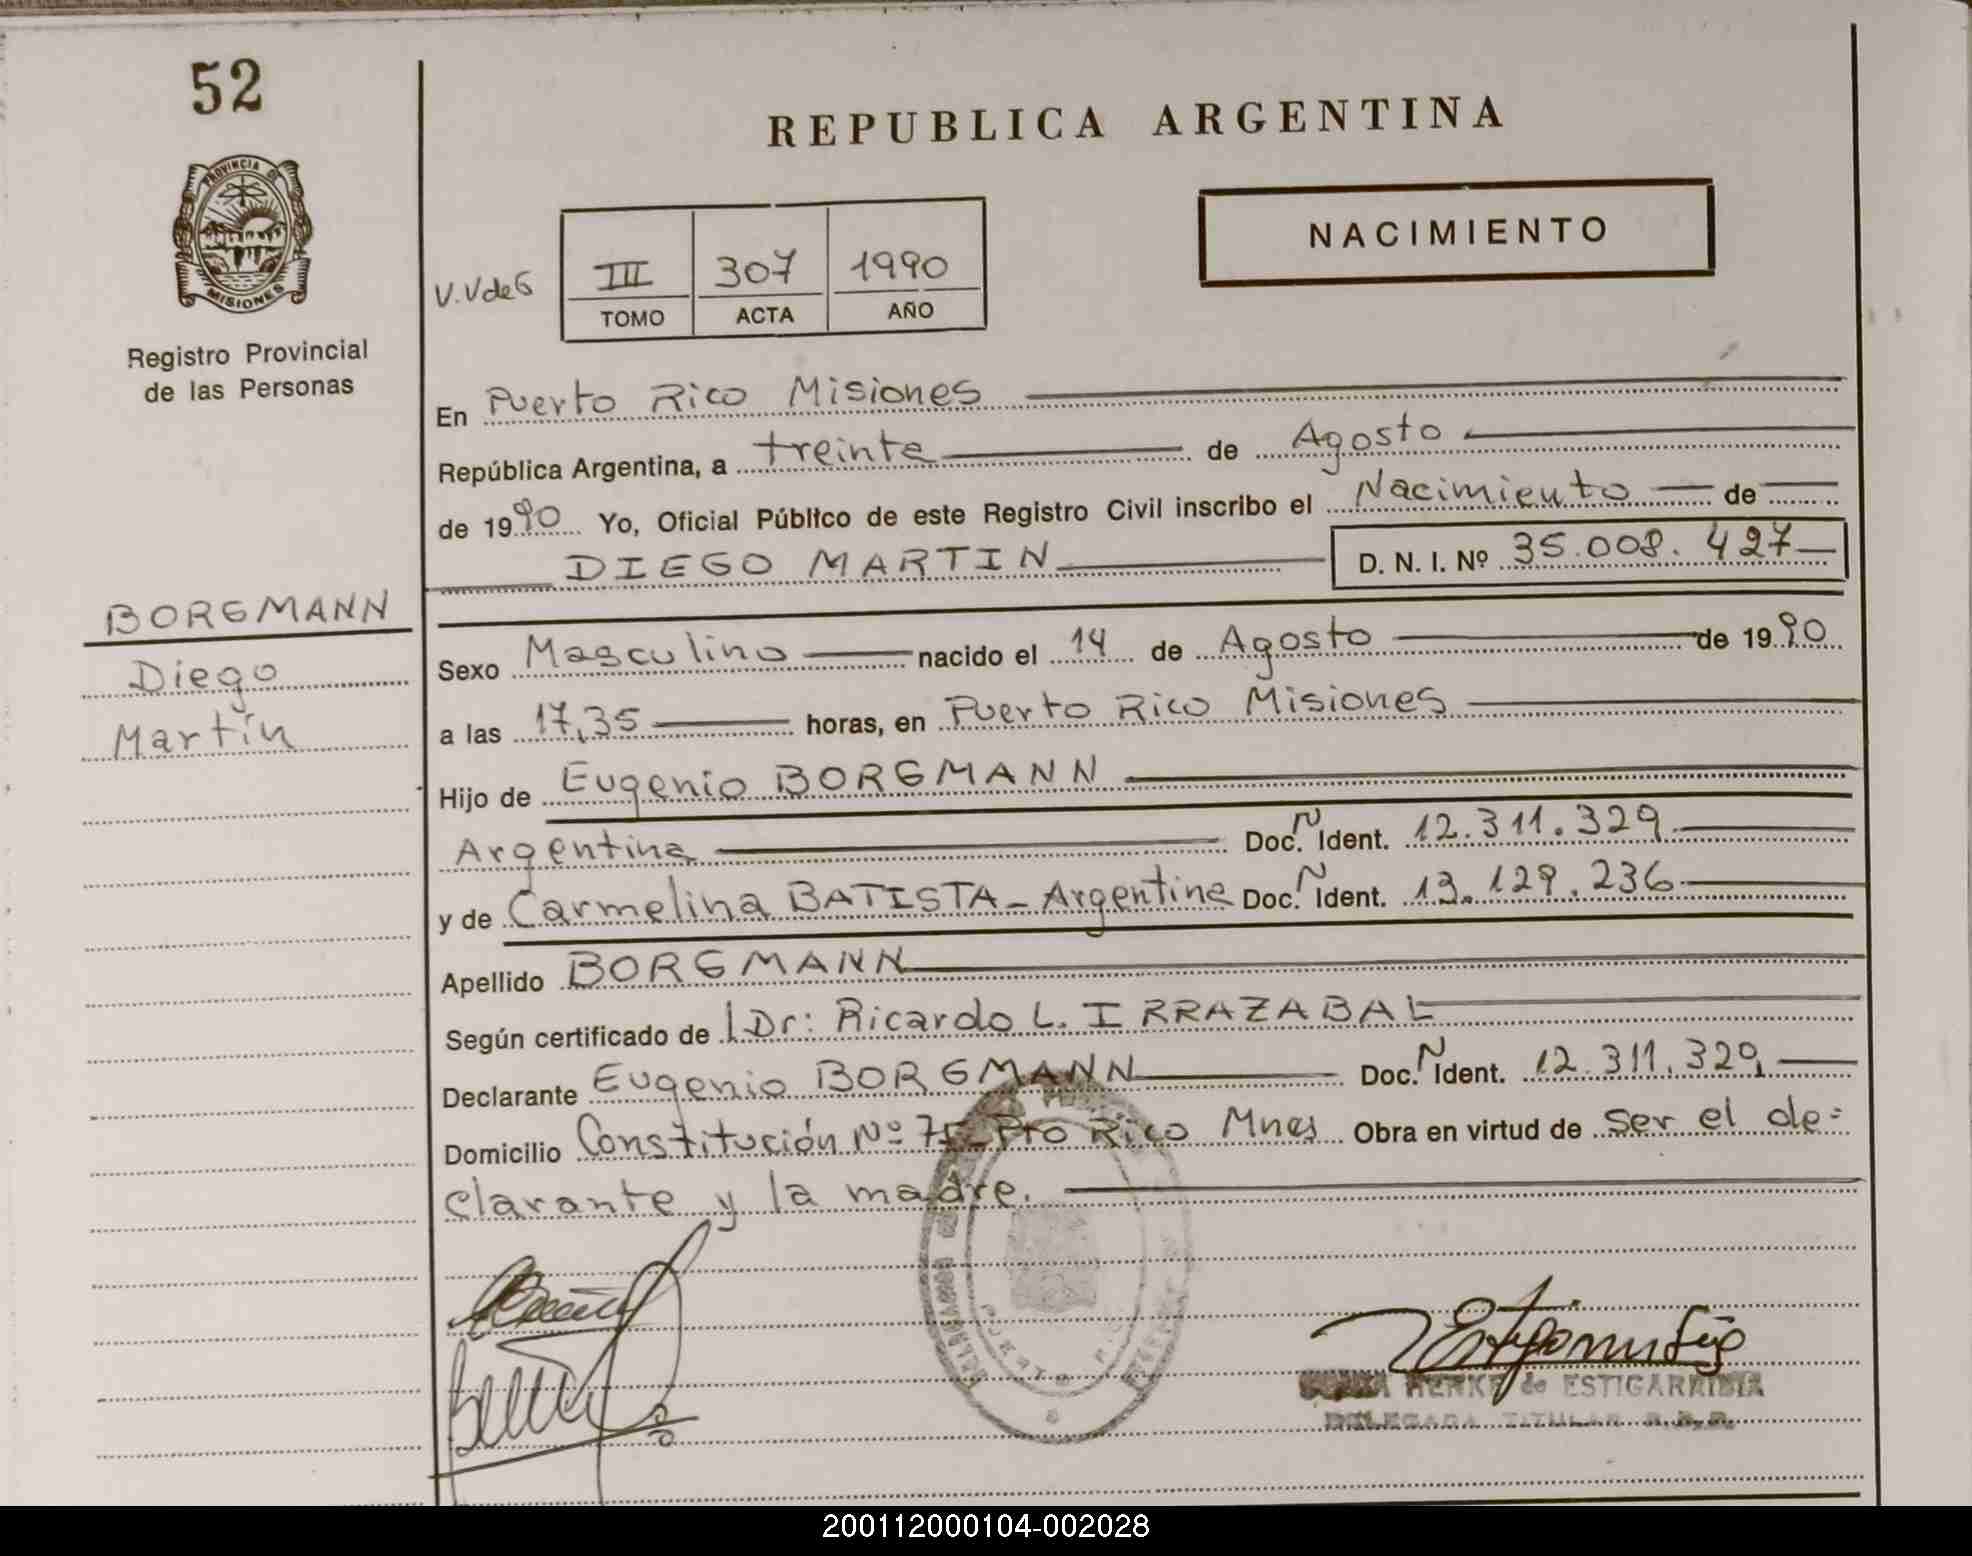 52
REPUBLICA ARGENTINA
PROVINCIA DE
MISIONES
Registro Provincial
de las Personas
NACIMIENTO
V.VdeG
III 307 1990
TOMO ACTA AÑO
En Puerto Rico Misiones
República Argentina, a treinta de Agosto
de 1990 Yo, Oficial Público de este Registro Civil inscribo el Nacimiento de
DIEGO MARTIN D. N. I. Nº 35.008.427
BORGMANN
Diego
Martín
Sexo Masculino nacido el 14 de Agosto de 1990
a las 17,35 horas, en Puerto Rico Misiones
Hijo de Eugenio BORGMANN
Argentina Doc. N Ident. 12.311.329
y de Carmelina BATISTA - Argentina Doc. N Ident. 13.129.236
Apellido BORGMANN
Según certificado de Dr: Ricardo L. IRRAZABAL
Declarante Eugenio BORGMANN Doc. N Ident. 12.311.329
Domicilio Constitución Nº 75 Pto Rico Mnes Obra en virtud de ser el de=
clarante y la madre.
HENKE de ESTIGARRIBIA
DELEGADA TITULAR R.P.P.
200112000104-002028